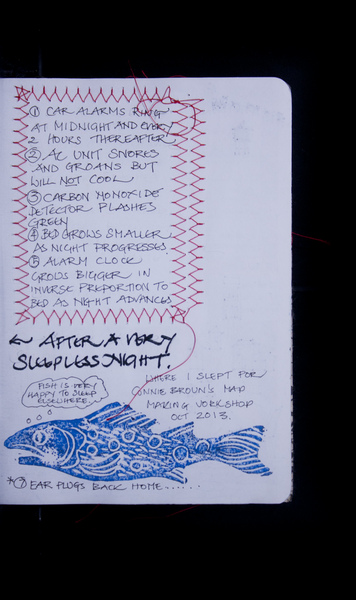 ① CAR ALARMS RING
AT MIDNIGHT AND EVERY
2 HOURS THEREAFTER
② AC UNIT SNORES
AND GROANS BUT
WILL NOT COOL
③ CARBON MONOXIDE
DETECTOR FLASHES
GREEN
④ BED GROWS SMALLER
AS NIGHT PROGRESSES
⑤ ALARM CLOCK
GROWS BIGGER IN
INVERSE PREPORTION TO
BED AS NIGHT ADVANCES
← AFTER A VERY
SLEEPLESS NIGHT.
FISH IS VERY
HAPPY TO SLEEP
ELSEWHERE.
WHERE I SLEPT FOR
CONNIE BROWN'S MAP
MAKING WORKSHOP
OCT 2013.
* ⑦ EAR PLUGS BACK HOME......